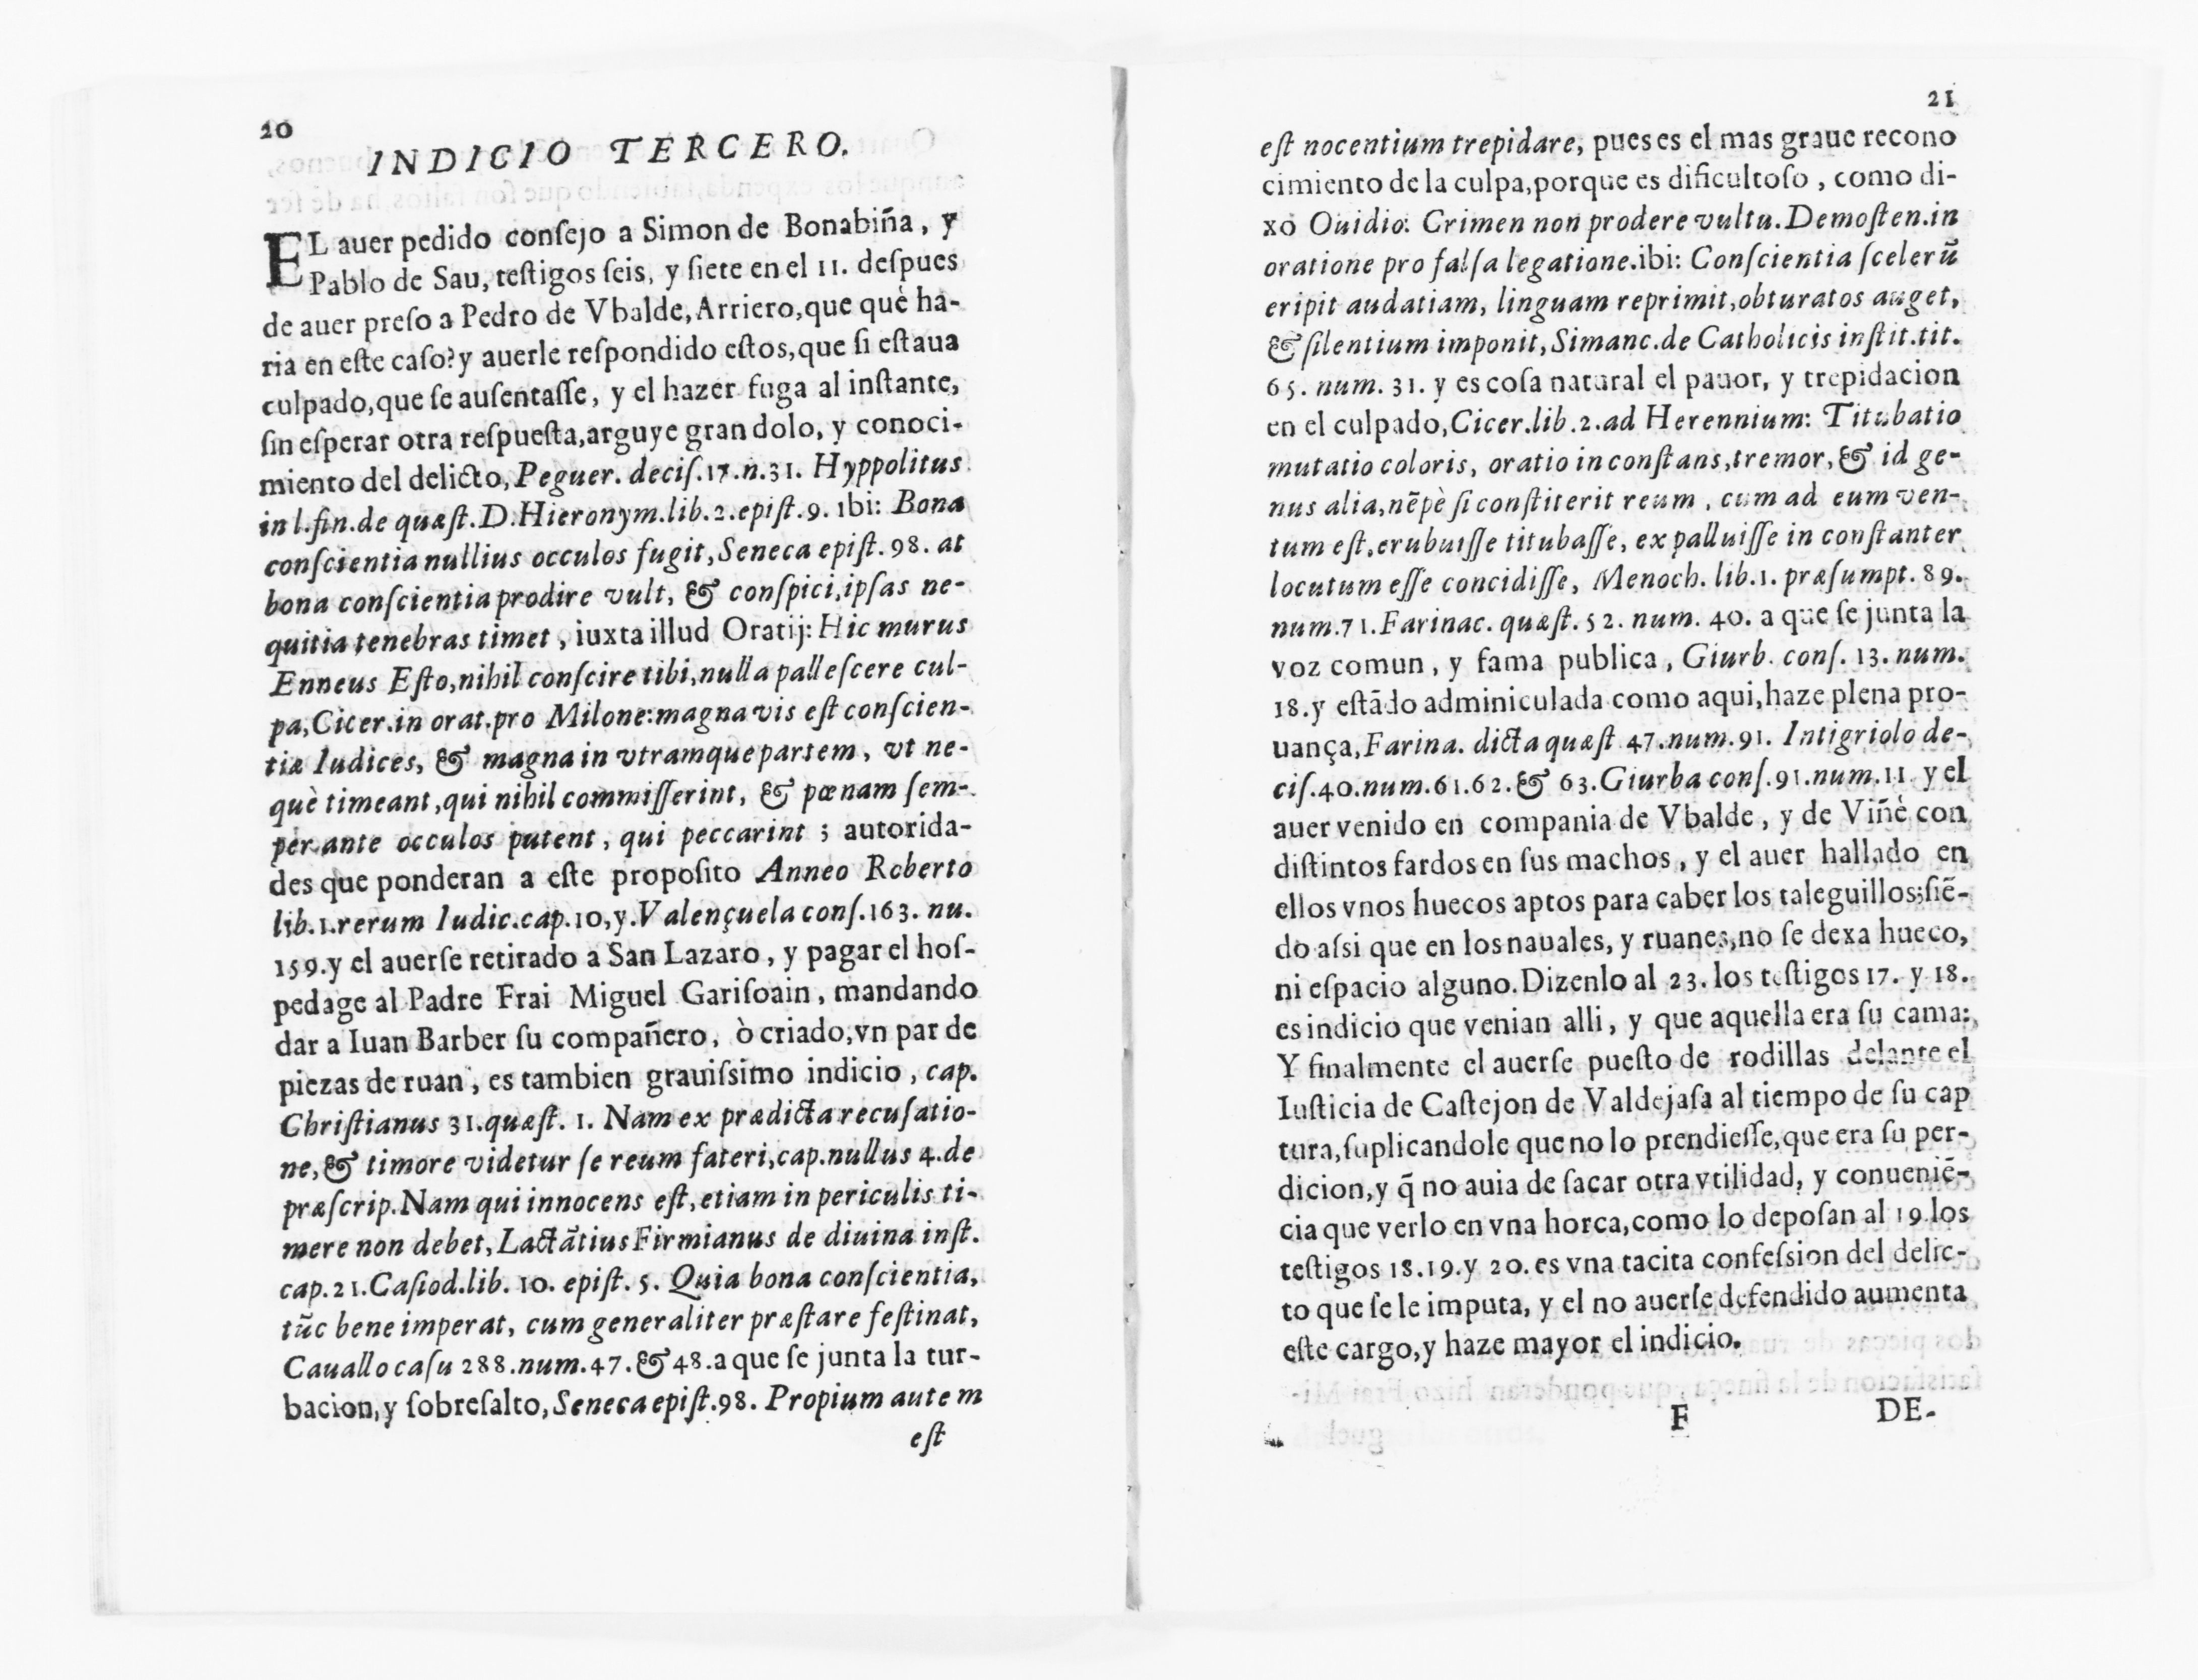 20
INDICIO TERCERO.
EL auer pedido conſejo a Simon de Bonabiña, y
Pablo de Sau, teſtigos ſeis, y ſiete en el 11. deſpues
de auer preſo a Pedro de Vbalde, Arriero, que què ha-
ria en eſte caſo? y auerle reſpondido eſtos, que ſi eſtaua
culpado, que ſe auſentaſſe, y el hazer fuga al inſtante,
ſin eſperar otra reſpueſta, arguye gran dolo, y conoci-
miento del delicto, Peguer. deciſ. 17. n. 31. Hyppolitus
in l. fin. de quæſt. D. Hieronym. lib. 2. epiſt. 9. ibi: Bona
conſcientia nullius occulos fugit, Seneca epiſt. 98. at
bona conſcientia prodire vult, & conſpici, ipſas ne-
quitia tenebras timet, iuxta illud Oratij: Hic murus
Enneus Eſto, nihil conſcire tibi, nulla palleſcere cul-
pa, Cicer. in orat. pro Milone: magna vis eſt conſcien-
tiæ Iudices, & magna in vtramque partem, vt ne-
què timeant, qui nihil commiſſerint, & pœnam ſem-
per ante occulos putent, qui peccarint; autorida-
des que ponderan a eſte propoſito Anneo Roberto
lib. 1. rerum Iudic. cap. 10, y. Valençuela conſ. 163. nu.
159. y el auerſe retirado a San Lazaro, y pagar el hoſ-
pedage al Padre Frai Miguel Gariſoain, mandando
dar a Iuan Barber ſu compañero, ò criado, vn par de
piezas de ruan, es tambien grauiſsimo indicio, cap.
Chriſtianus 31. quæſt. 1. Nam ex prædicta recuſatio-
ne, & timore videtur ſe reum fateri, cap. nullus 4. de
præſcrip. Nam qui innocens eſt, etiam in periculis ti-
mere non debet, Lactātius Firmianus de diuina inſt.
cap. 21. Caſiod. lib. 10. epiſt. 5. Quia bona conſcientia,
tūc bene imperat, cum generaliter præſtare feſtinat,
Cauallo caſu 288. num. 47. & 48. a que ſe junta la tur-
bacion, y ſobreſalto, Seneca epiſt. 98. Propium autem
eſt
21
eſt nocentium trepidare, pues es el mas graue recono
cimiento de la culpa, porque es dificultoſo, como di-
xo Ouidio: Crimen non prodere vultu. Demoſten. in
oratione pro falſa legatione. ibi: Conſcientia ſcelerū
eripit audatiam, linguam reprimit, obturatos auget,
& ſilentium imponit, Simanc. de Catholicis inſtit. tit.
65. num. 31. y es coſa natural el pauor, y trepidacion
en el culpado, Cicer. lib. 2. ad Herennium: Titubatio
mutatio coloris, oratio inconſtans, tremor, & id ge-
nus alia, nēpè ſi conſtiterit reum, cum ad eum ven-
tum eſt, erubuiſſe titubaſſe, expalluiſſe in conſtanter
locutum eſſe concidiſſe, Menoch. lib. 1. præſumpt. 89.
num. 71. Farinac. quæſt. 52. num. 40. a que ſe junta la
voz comun, y fama publica, Giurb. conſ. 13. num.
18. y eſtādo adminiculada como aqui, haze plena pro-
uança, Farina. dicta quæſt 47. num. 91. Intigriolo de-
ciſ. 40. num. 61. 62. & 63. Giurba conſ. 91. num. 11. y el
auer venido en compania de Vbalde, y de Viñè con
diſtintos fardos en ſus machos, y el auer hallado en
ellos vnos huecos aptos para caber los taleguillos; ſiē-
do aſsi que en los nauales, y ruanes, no ſe dexa hueco,
ni eſpacio alguno. Dizenlo al 23. los teſtigos 17. y 18.
es indicio que venian alli, y que aquella era ſu cama:
Y finalmente el auerſe pueſto de rodillas delante el
Iuſticia de Caſtejon de Valdejaſa al tiempo de ſu cap
tura, ſuplicandole que no lo prendieſſe, que era ſu per-
dicion, y q̃ no auia de ſacar otra vtilidad, y conueniē-
cia que verlo en vna horca, como lo depoſan al 19. los
teſtigos 18. 19. y 20. es vna tacita confeſsion del delic-
to que ſe le imputa, y el no auerſe defendido aumenta
eſte cargo, y haze mayor el indicio.
F DE-